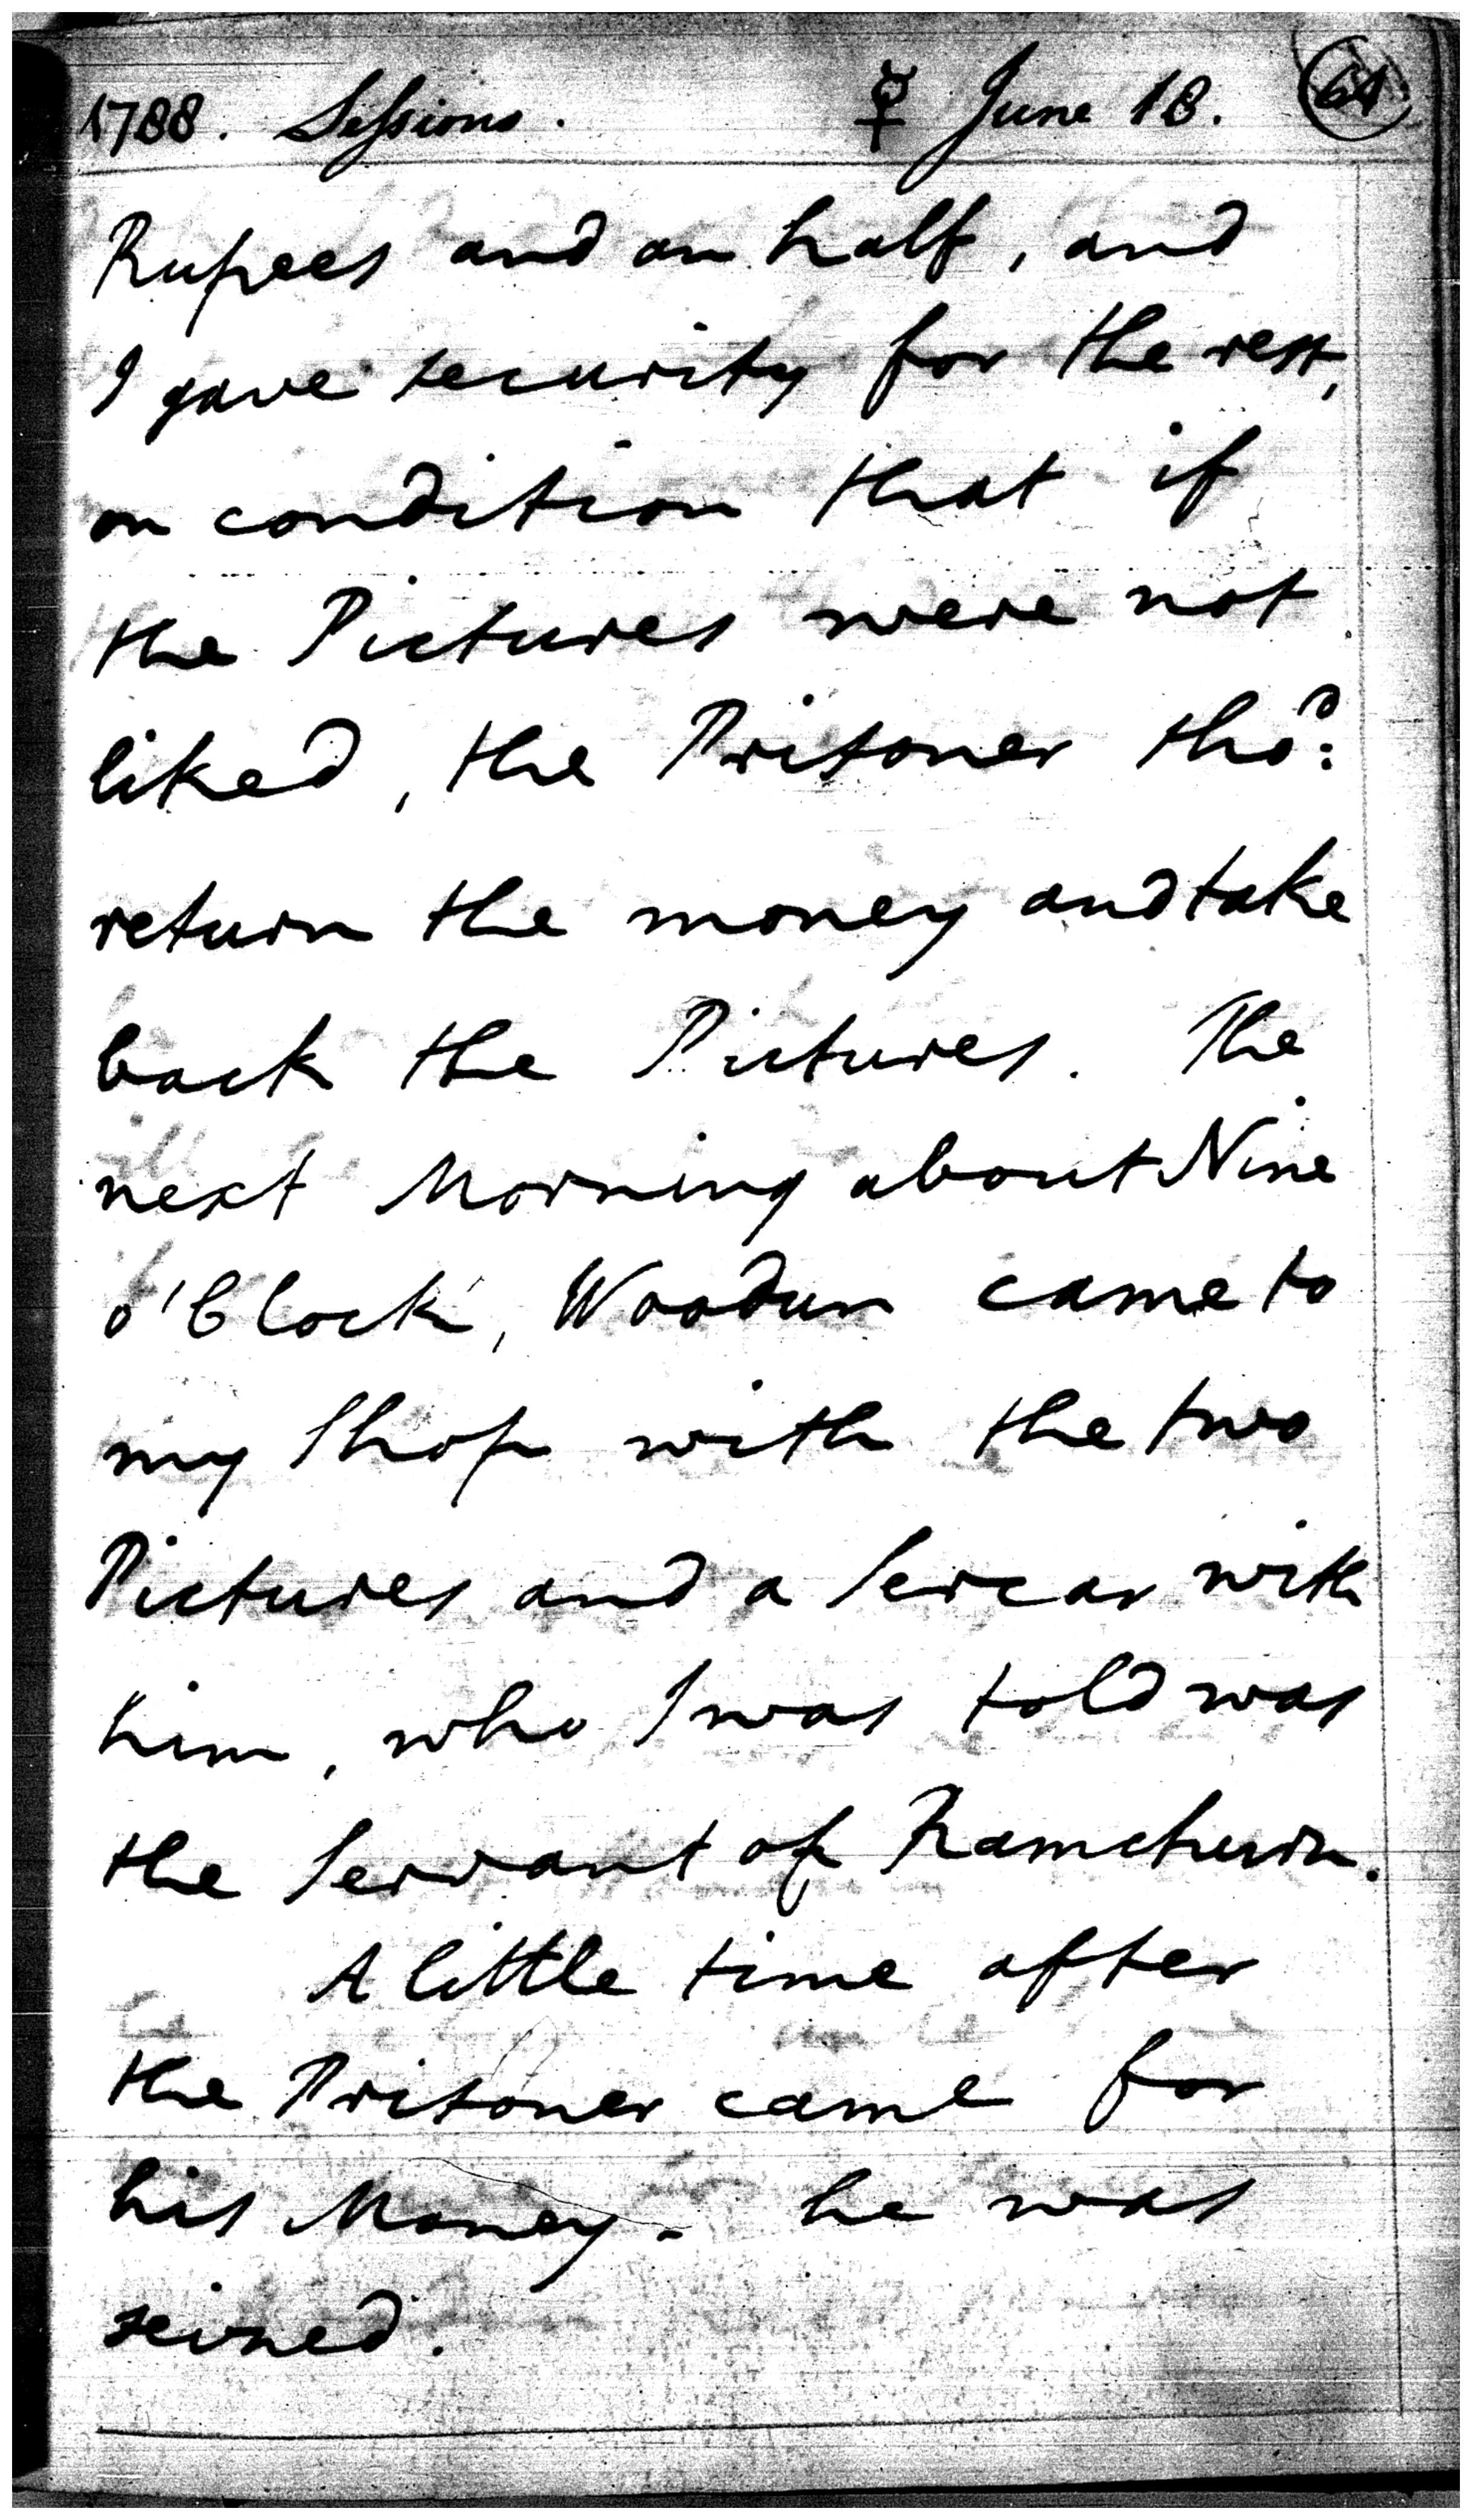 1788. Sessions. ☿ June 18. 64
Rupees and an half, and
I gave security for the rest,
on condition that if
the Pictures were not
liked, the Prisoner shod:
return the money and take
back the Pictures. The
next Morning about Nine
o'Clock, Woodun came to
my Shop with the two
Pictures and a Sercar with
him, who I was told was
the Servant of Ramchurn.
A little time after
the Prisoner came for
his Money - he was
seized.